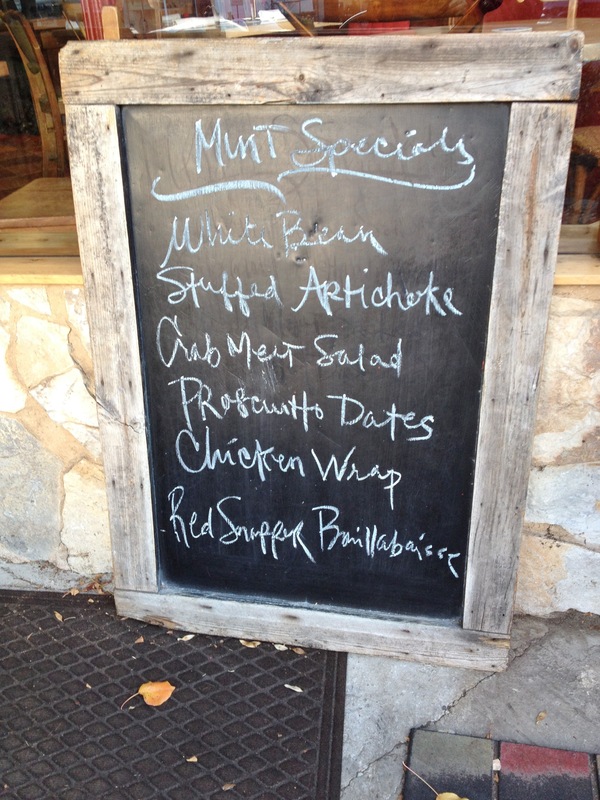 Mint Specials
White Bean
Stuffed Artichoke
Crab Meat Salad
Proscuitto Dates
Chicken Wrap
Red Snapper Boillabaisse